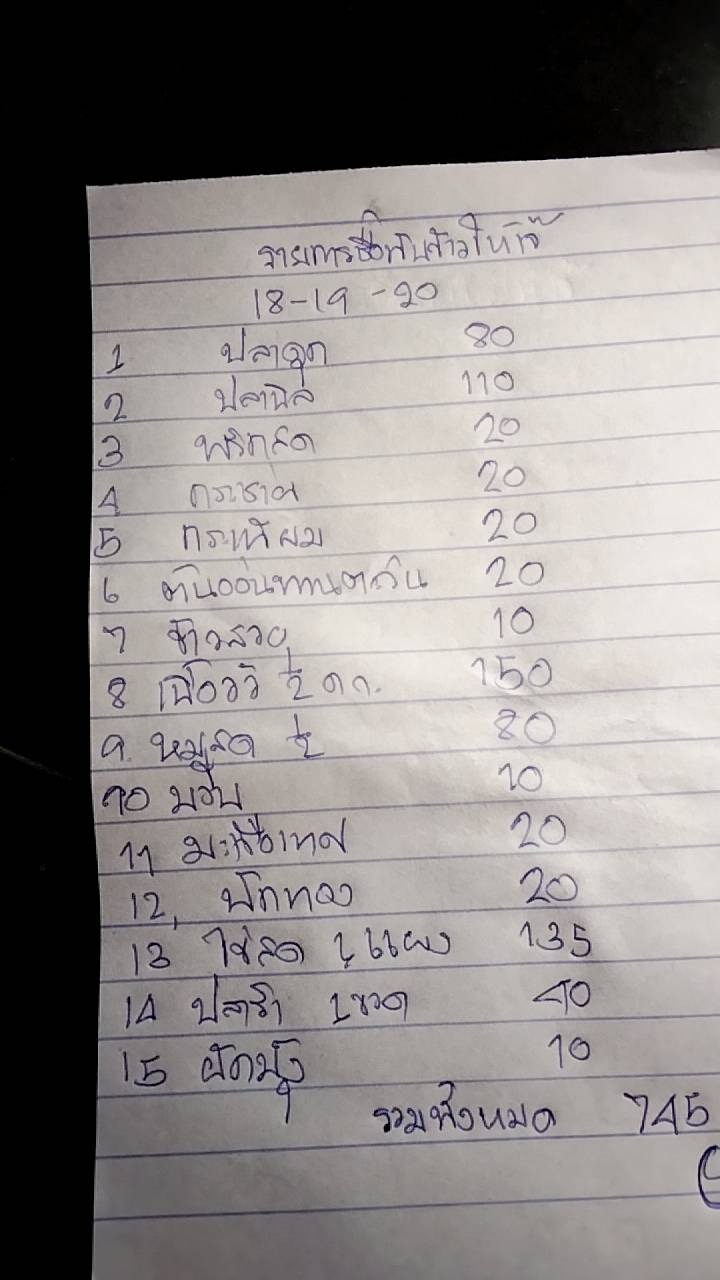 รายการซื้อกับข้าวให้เจ๊
18-19-20
1 ปลาดุก 80
2 ปลานิล 110
3 พริกสด 20
4 กระชาย 20
5 กระเทียม 20
6 ต้นอ่อนทานตะวัน 20
7 ข้าวสวย 10
8 เนื้อวัว ½ กก. 150
9. หมูสด ½ 80
10 มะเขือ 10
11 มะเขือเทศ 20
12, ฟักทอง 20
13 ไข่สด 1 แผง 135
14 ปลาร้า 1ขวด 40
15 ผักบุ้ง 10
รวมทั้งหมด 745